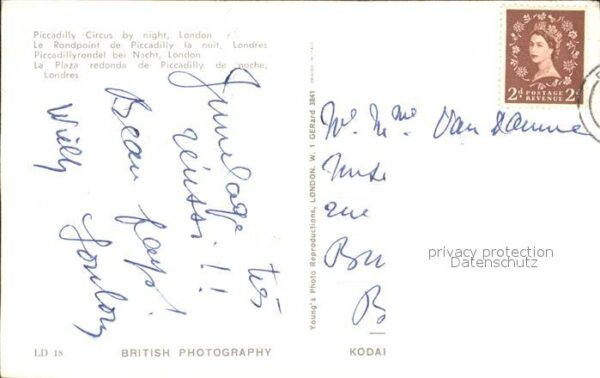 Piccadilly Circus by night, London
Le Rondpoint de Piccadilly la nuit, Londres
Piccadillyrondel bei Nacht, London
La Plaza redonda de Piccadilly de noche,
Londres
Jumelage très
réussi!!
Beau pays!
Willy
Young's Photo Reproductions, LONDON. W. 1 GERrard 3841
2d POSTAGE 2d
REVENUE
Mr. Mme. Van Damme
rue
privacy protection
Datenschutz
LD 18
BRITISH PHOTOGRAPHY
KODAK